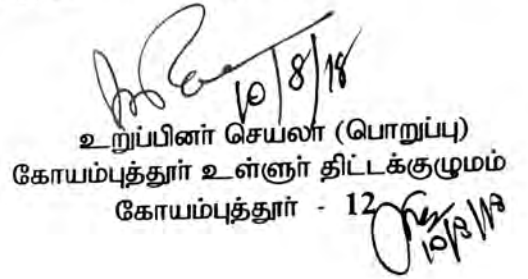 10/8/18
உறுப்பினர் செயலர் (பொறுப்பு)
கோயம்புத்தூர் உள்ளூர் திட்டக்குழுமம்
கோயம்புத்தூர் - 12